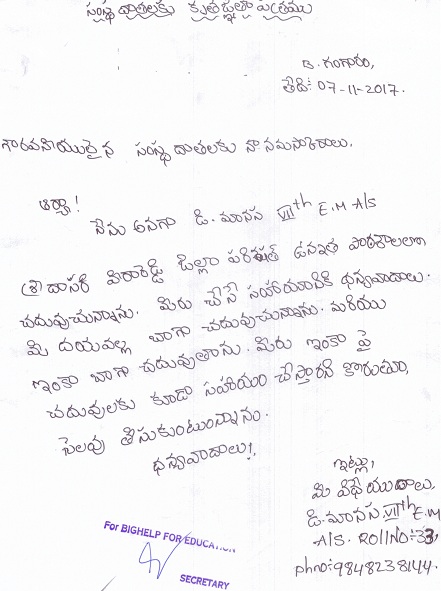 సంస్థ దాతలకు కృతజ్ఞతా పత్రము
డి. గంగారం,
తేది: 07-11-2017.
గౌరవనీయులైన సంస్థ దాతలకు నా నమస్కారాలు.
ఆర్యా!
నేను అనగా డి. మానస VIIth E.M A/S
శ్రీ దాసరి వీరారెడ్డి జిల్లా పరిషత్ ఉన్నత పాఠశాలలో
చదువుచున్నాను. మీరు చేసే సహాయానికి ధన్యవాదాలు.
మీ దయవల్ల బాగా చదువుచున్నాను. మరియు
ఇంకా బాగా చదువుతాను. మీరు ఇంకా పై
చదువులకు కూడా సహాయం చేస్తారని కోరుతూ,
సెలవు తీసుకుంటున్నాను.
ధన్యవాదాలు!,
ఇట్లు,
మీ విధేయురాలు,
డి. మానస VIIth E.M
A/S. ROllNO:-33,
phno:-9848238144.
For BIGHELP FOR EDUCATION
SECRETARY